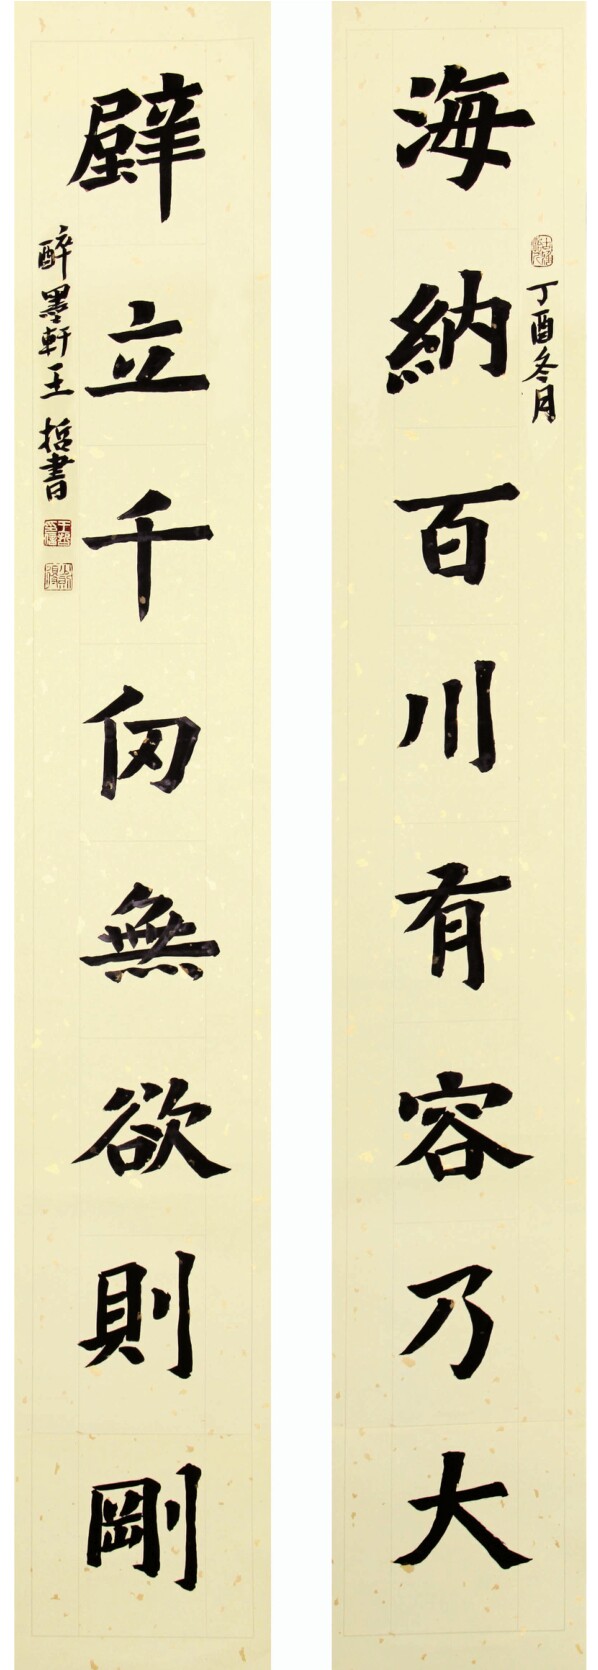 海納百川有容乃大
丁酉冬月
壁立千仞無欲則剛
醉墨軒王哲書